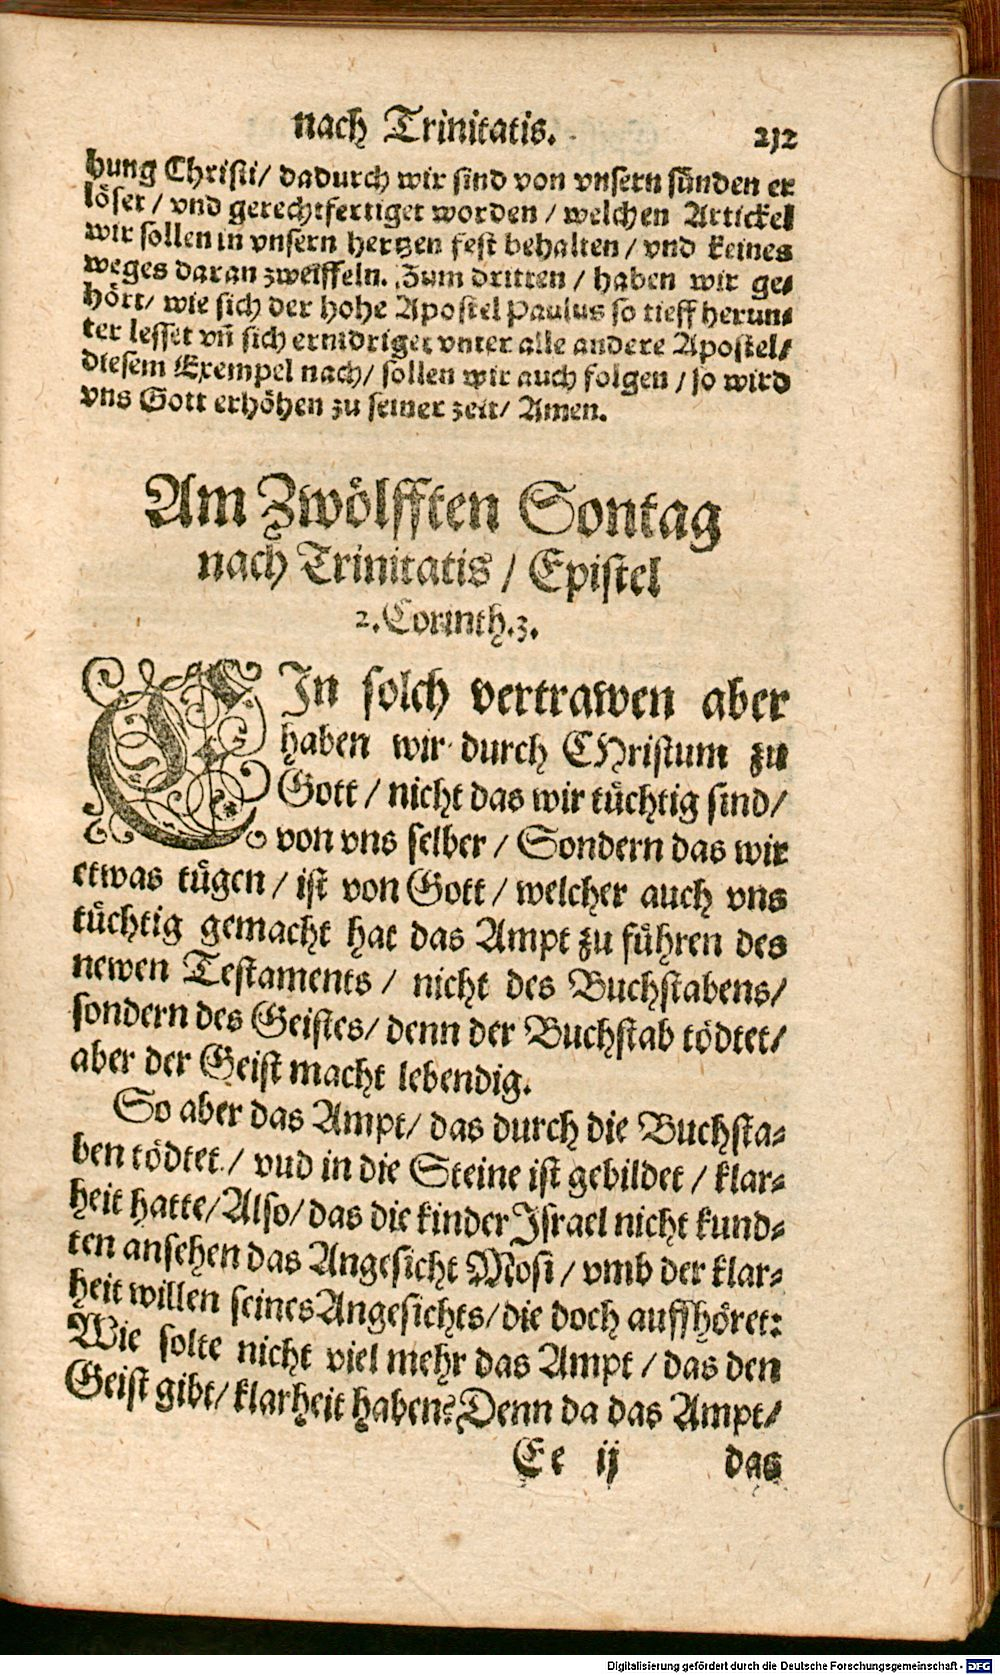 nach Trinitatis. 212
hung Christi/ dadurch wir sind von vnsern sünden er
löset / vnd gerechtfertiget worden / welchen Artickel
wir sollen in vnsern hertzen fest behalten / vnd keines
weges daran zweiffeln. Zum dritten / haben wir ge⸗
hört/ wie sich der hohe Apostel Paulus so tieff herun⸗
ter lesset vñ sich ernidriget vnter alle andere Apostel/
diesem Exempel nach/ sollen wir auch folgen / so wird
vns Gott erhöhen zu seiner zeit/ Amen.
Am Zwölfften Sontag
nach Trinitatis / Epistel
2. Corinth. 3.
EIn solch vertrawen aber
haben wir durch CHristum zu
Gott / nicht das wir tüchtig sind/
von vns selber / Sondern das wir
etwas tügen / ist von Gott / welcher auch vns
tüchtig gemacht hat das Ampt zu führen des
newen Testaments / nicht des Buchstabens/
sondern des Geistes/ denn der Buchstab tödtet/
aber der Geist macht lebendig.
So aber das Ampt/ das durch die Buchsta⸗
ben tödtet / vud in die Steine ist gebildet / klar⸗
heit hatte/ Also/ das die kinder Israel nicht kund⸗
ten ansehen das Angesicht Mosi / vmb der klar⸗
heit willen seines Angesichts/ die doch auffhöret:
Wie solte nicht viel mehr das Ampt / das den
Geist gibt/ klarheit haben? Denn da das Ampt/
Ee ij das
Digitalisierung gefördert durch die Deutsche Forschungsgemeinschaft - DFG